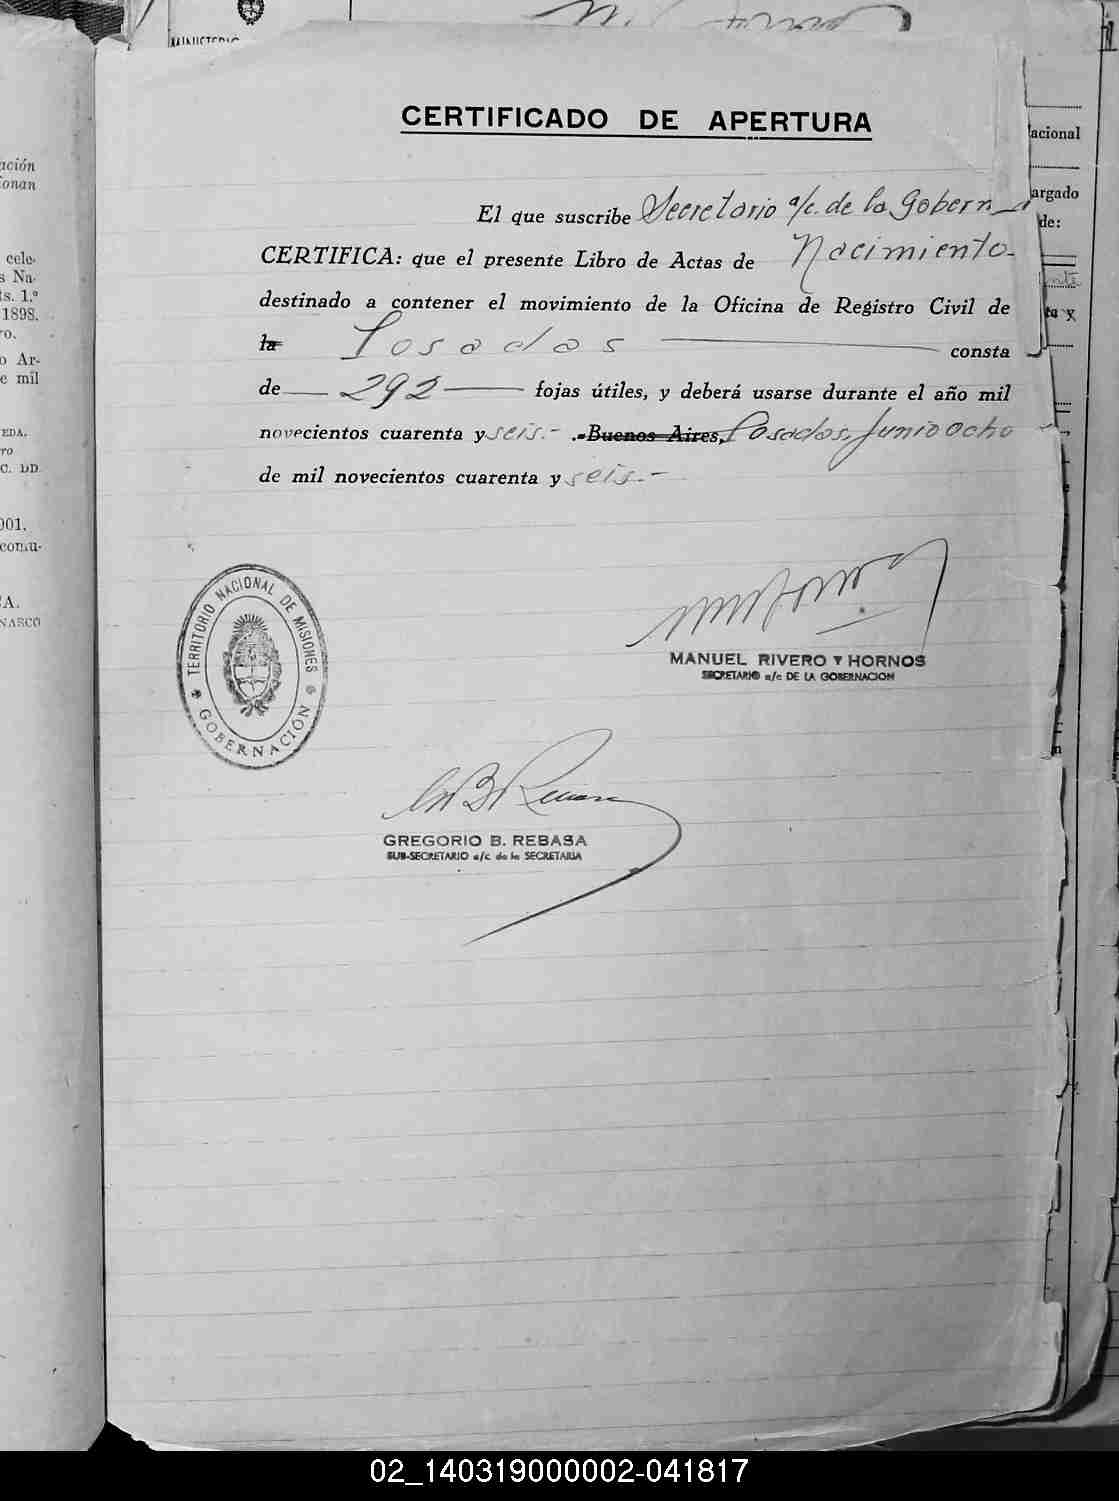 MINISTERIO
CERTIFICADO DE APERTURA
El que suscribe Secretario a/c. de la Gobern
CERTIFICA: que el presente Libro de Actas de Nacimiento-
destinado a contener el movimiento de la Oficina de Registro Civil de
la Posadas consta
de 292 fojas útiles, y deberá usarse durante el año mil
novecientos cuarenta y seis.- .-Buenos Aires, Posadas, Junio ocho
de mil novecientos cuarenta y seis.-
TERRITORIO NACIONAL DE MISIONES
GOBERNACIÓN
MANUEL RIVERO Y HORNOS
SECRETARIO a/c DE LA GOBERNACION
GREGORIO B. REBASA
SUB-SECRETARIO a/c de la SECRETARIA
ación
ionan
cele-
s Na-
ts. 1.º
1898.
ro.
o Ar-
e mil
EDA.
ro
C. DD
901.
comu-
CA.
NASCO
acional
argado
de:
ta y
02_140319000002-041817